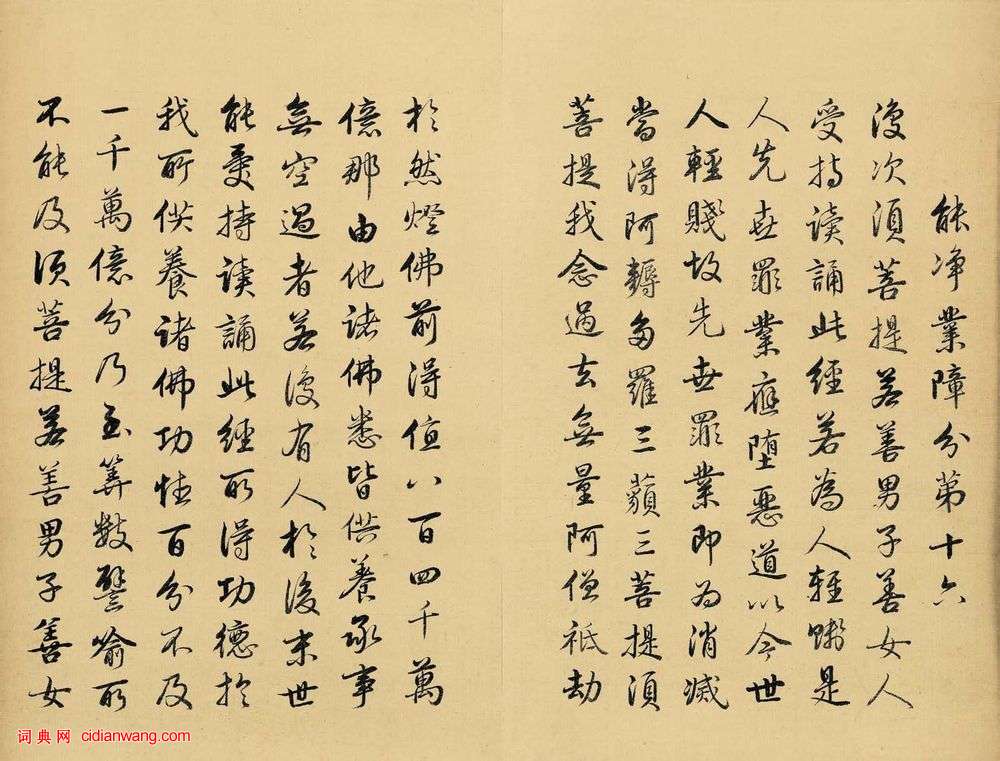 能净業障分第十六
復次須菩提若善男子善女人
受持读誦此經若為人輕賤是
人先世罪業應堕惡道以今世
人輕賤故先世罪業即为消滅
當得阿耨多羅三藐三菩提須
菩提我念過去無量阿僧祇劫
於然燈佛前得值八百四千萬
億那由他諸佛悉皆供養承事
無空過者若復有人於後末世
能受持读誦此經所得功德於
我所供養諸佛功德百分不及
一千萬億分乃至算數譬喻所
不能及須菩提若善男子善女
词典网 cidianwang.com